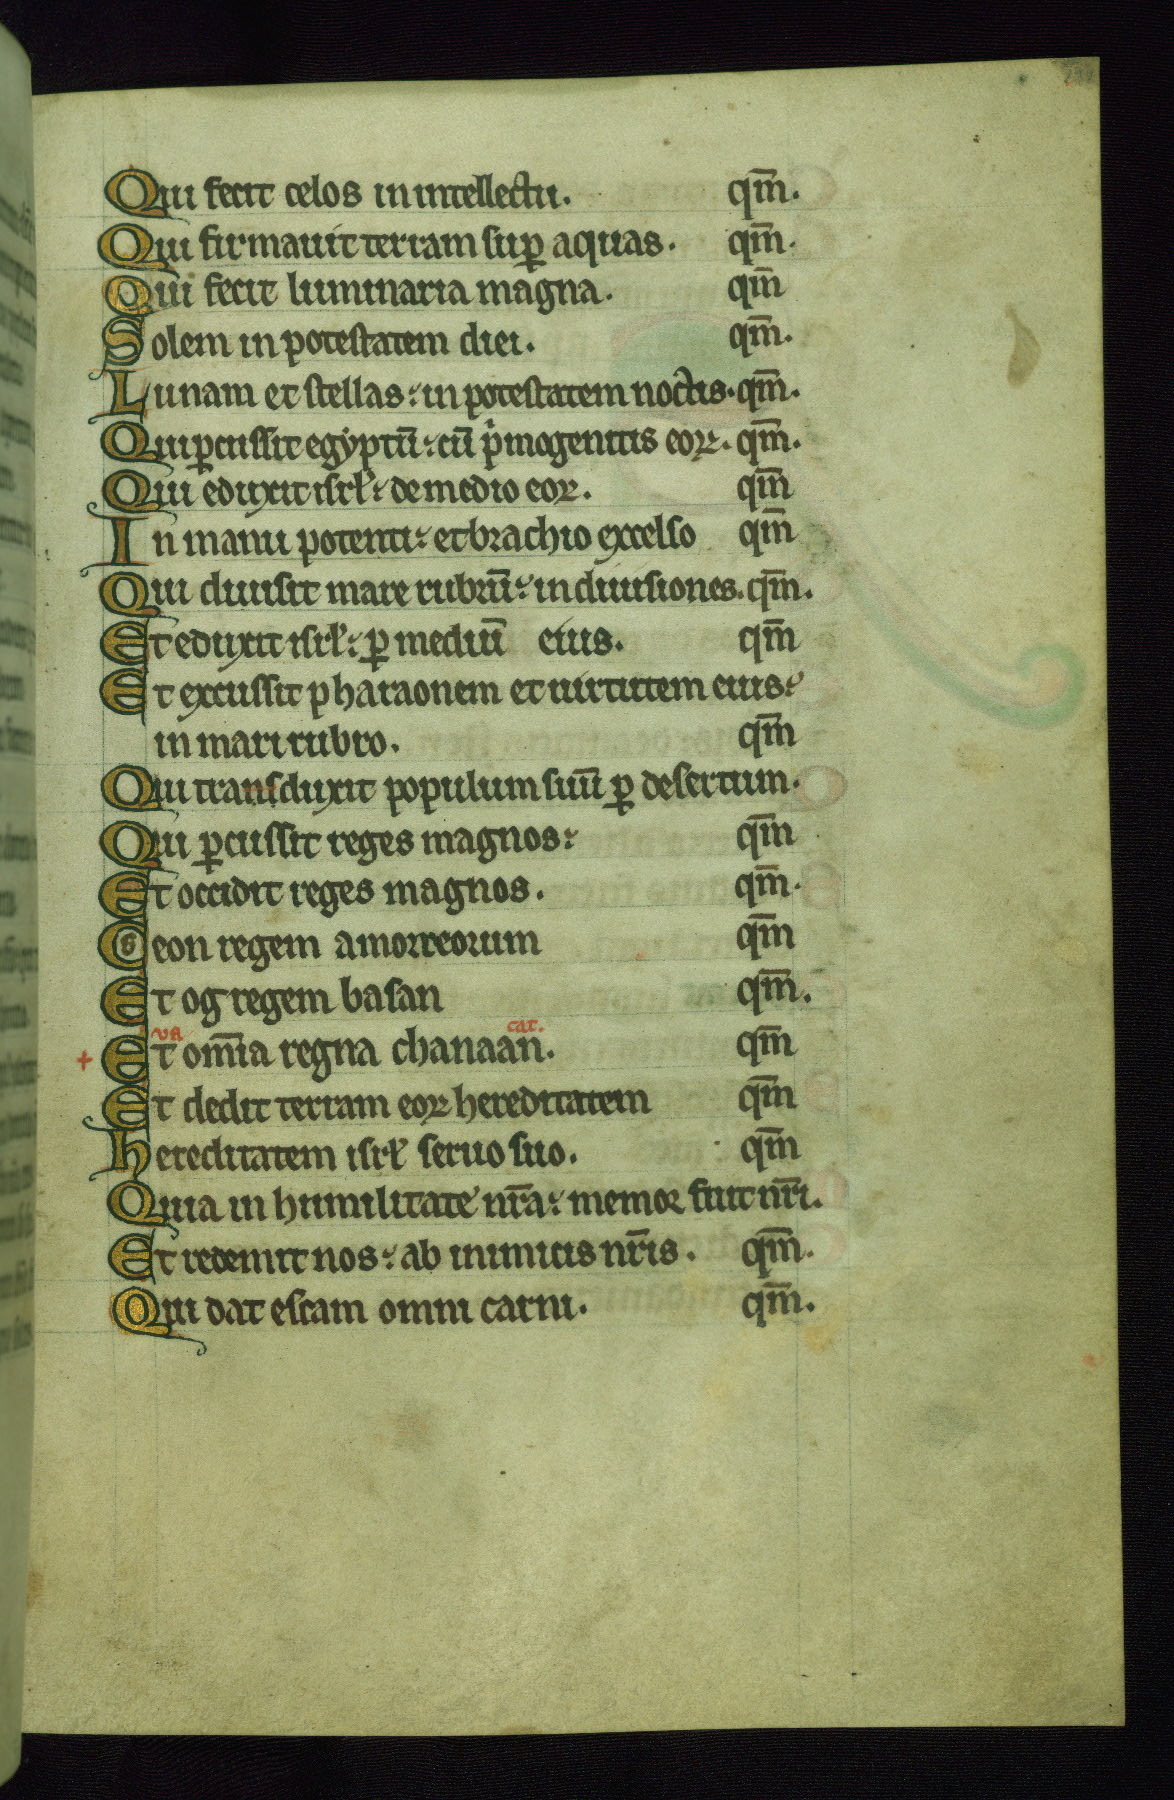 Qui fecit celos in intellectu. qm̄.
Qui firmauit terram suꝑ aquas. qm̄.
Qui fecit luminaria magna. qm̄
Solem in potestatem diei. qm̄.
Lunam et stellas: in potestatem noctis. qm̄.
Qui ꝑcussit egyptū: cū pͥmogenitis eoꝝ. qm̄.
Qui eduxit isrl̓: de medio eoꝝ. qm̄
In manu potenti: et brachio excelso qm̄
Qui diuisit mare rubrū: in diuisiones. qm̄.
Et eduxit isrl̓: ꝑ mediū eius. qm̄
Et excussit pharaonem et uirtutem eius:
in mari rubro. qm̄
Qui transduxit populum suū ꝑ desertum.
Qui ꝑcussit reges magnos: qm̄
Et occidit reges magnos. qm̄.
Seon regem amorreorum qm̄
Et og regem basan qm̄.
Et om̄ia regna chanaan. qm̄
Et dedit terram eoꝝ hereditatem qm̄
hereditatem isrl̓ seruo suo. qm̄
Quia in humilitate nr̄a: memor fuit nr̄i.
Et redemit nos: ab inimicis nr̄is. qm̄.
Qui dat escam omni carni. qm̄.